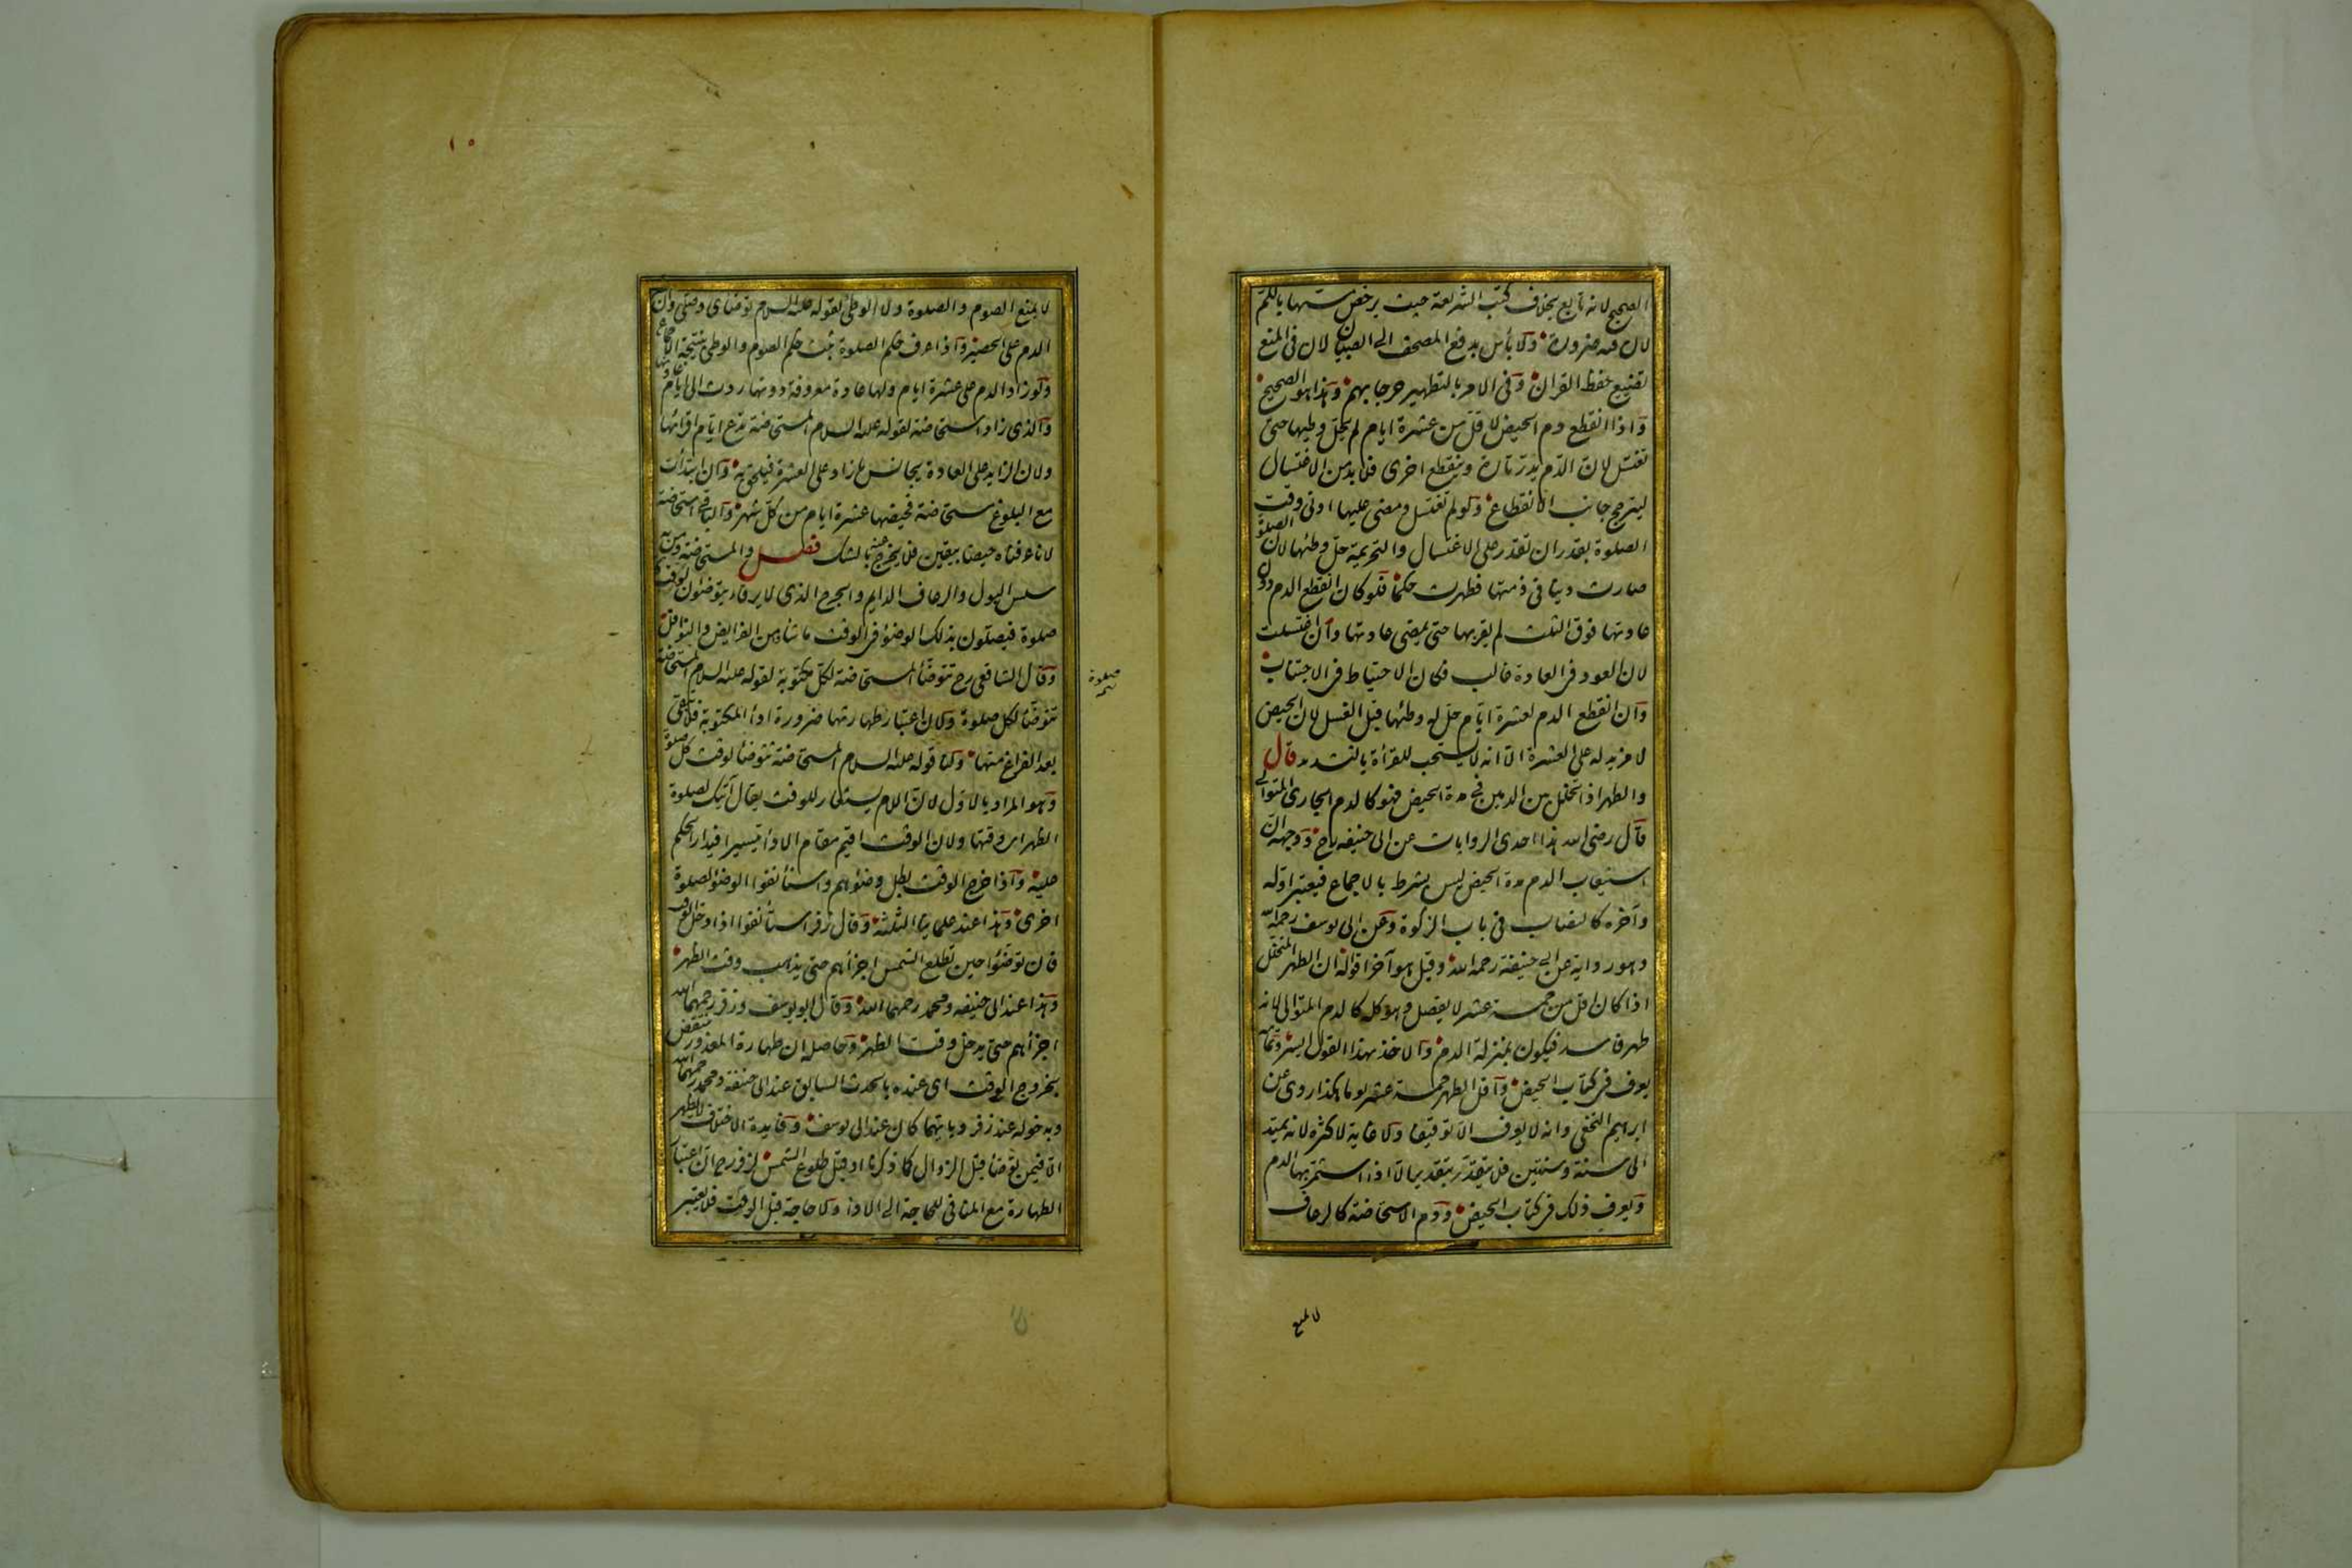 الصحيح لانه تابع بخلاف كتب الشريعة حيث يرخص مسّها بالكم
لان فيه ضرورة ولا بأس بدفع المصحف الى الصبيان لان فى المنع
تضييع حفظ القران وفى الامر بالتطهير حرجا بهم وهذا هو الصحيح
واذا انقطع دم الحيض لاقل من عشرة ايام لم يحل وطيها حتى
تغتسل لان الدم يدرّ تارة وينقطع اخرى فلا بد من الاغتسال
ليترجح جانب الانقطاع ولو لم تغتسل ومضى عليها ادنى وقت
الصلوة بقدر ان تقدر على الاغتسال والتحريمة حلّ وطئها لان الصلوة
صارت دينا فى ذمتها فطهرت حكما فلو كان انقطع الدم دون
عادتها فوق الثلث لم يقربها حتى يمضى عادتها وان اغتسلت
لان العود فى العادة غالب فكان الاحتياط فى الاجتناب
وان انقطع الدم لعشرة ايام حل له وطئها قبل الغسل لان الحيض
لا مزيد له على العشرة الا انه لا يستحب للقرأة بالتشديد قال
والطهر اذا تخلل بين الدمين فى مدة الحيض فهو كالدم الجارى المتوالى
قال رضى الله هذا احدى الروايات عن ابى حنيفه رح ووجهه ان
استيعاب الدم مدة الحيض ليس بشرط بالاجماع فيعتبر اوله
وآخره كالنصاب فى باب الزكوة وعن ابى يوسف رحمه الله
وهو رواية عن ابى حنيفة رحمه الله وقيل هو آخر اقواله ان الطهر المتخلل
اذا كان اقل من خمسة عشر لا يفصل وهو كله كالدم المتوالى لانه
طهر فاسد فيكون بمنزلة الدم والاخذ بهذا القول ايسر وتمامه
يعرف فى كتاب الحيض واقل الطهر خمسة عشر يوما هكذا روى عن
ابراهيم النخعى وانه لا يعرف الا توقيفا ولا غاية لاكثره لانه يمتد
الى سنة وسنتين فلا يتقدر بتقدير الا اذا استمر بها الدم
ويعرف ذلك فى كتاب الحيض ودم الاستحاضة كالرعاف
لا يمنع
١٠
لا يمنع الصوم والصلوة ولا الوطئ لقوله عليه السلام توضأى وصلى وان
الدم على الحصير واذا عرف حكم الصلوة ثبت حكم الصوم والوطى بنتيجة الاجماع
ولو زاد الدم على عشرة ايام ولها عادة معروفة دونها ردت الى ايام عادتها
والذى زاد استحاضة لقوله عليه السلام المستحاضة تدع ايام اقرائها
ولان الزايد على العادة يجانس ما زاد على العشرة فيلحق به وان ابتدأت
مع البلوغ مستحاضة فحيضها عشرة ايام من كل شهر والباقى استحاضة
لانا عرفناه حيضا بيقين فلا يخرج عنه بالشك فصل والمستحاضة ومن به
سلس البول والرعاف الدايم والجرح الذى لا يرقأ يتوضئون لوقت كل
صلوة فيصلون بذلك الوضوء فى الوقت ما شاؤا من الفرايض والنوافل
وقال الشافعى رح تتوضأ المستحاضة لكل مكتوبة لقوله عليه السلام المستحاضة
تتوضأ لكل صلوة ولان اعتبار طهارتها ضرورة اداء المكتوبة فلا يبقى
صلوة
بعد الفراغ منها ولنا قوله عليه السلام المستحاضة تتوضأ لوقت كل صلوة
وهو المراد بالاول لان اللام يستعار للوقت يقال آتيك لصلوة
الظهر اى وقتها ولان الوقت اقيم مقام الاداء تيسيرا فيدار الحكم
عليه واذا خرج الوقت بطل وضوئهم واستأنفوا الوضوء لصلوة
اخرى وهذا عند علماينا الثلثة وقال زفر استأنفوا اذا دخل الوقت
فان توضئوا حين تطلع الشمس اجزأهم حتى يذهب وقت الظهر
وهذا عند ابى حنيفه ومحمد رحمهما الله وقال ابو يوسف وزفر رحمهما الله
اجزأهم حتى يدخل وقت الظهر وحاصله ان طهارة المعذور ينتقض
بخروج الوقت اى عنده بالحدث السابق عند ابى حنيفة ومحمد رحمهما الله
وبدخوله عند زفر وبايهما كان عند ابى يوسف وفايدة الاختلاف لا تظهر
الا فيمن توضأ قبل الزوال كما ذكرنا او قبل طلوع الشمس لزفر رح ان اعتبار
الطهارة مع المنافى للحاجة الى الاداء ولا حاجة قبل الوقت فلا يعتبر